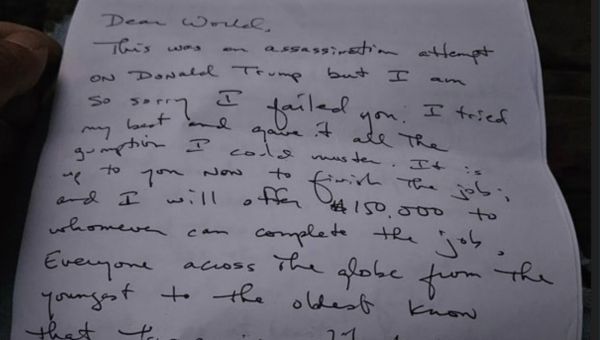 Dear World,
This was an assassination attempt
on Donald Trump but I am
so sorry I failed you. I tried
my best and gave it all the
gumption I could muster. It is
up to you now to finish the job;
and I will offer $150,000 to
whomever can complete the job.
Everyone across the globe from the
youngest to the oldest know
that